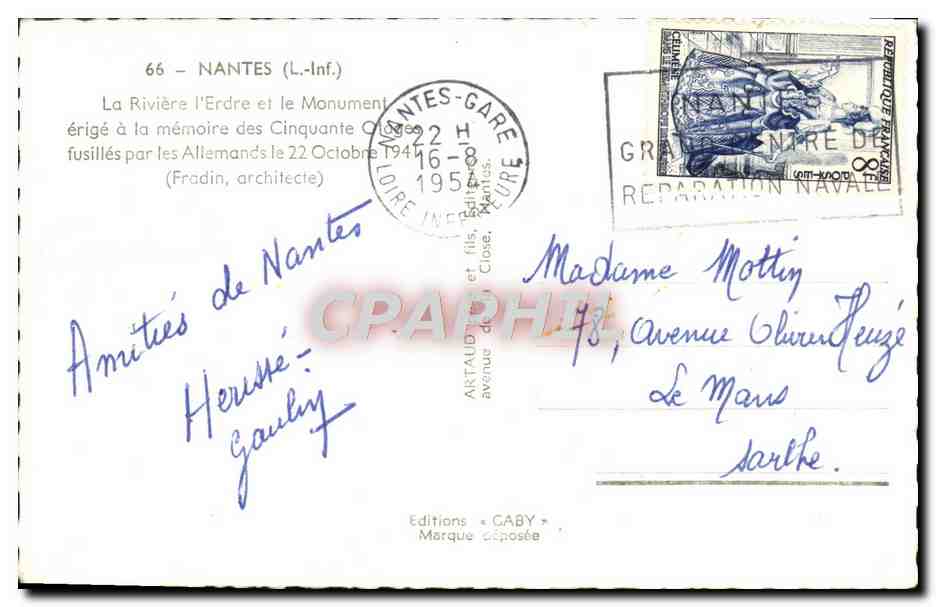 66 - NANTES (L.-Inf.)
La Rivière l'Erdre et le Monument
érigé à la mémoire des Cinquante Otages
fusillés par les Allemands le 22 Octobre 1941
(Fradin, architecte)
NANTES-GARE
22 H
16-8
1954
LOIRE INFERIEURE
NANTES
GRAND CENTRE DE
REPARATION NAVALE
REPUBLIQUE FRANÇAISE
8F
POSTES
CÉLIMÈNE
Amitiés de Nantes
Herissé-
Gauly
ARTAUD et fils, Éditeurs
avenue de Close, Nantes.
Madame Mottin
78, Avenue Olivier Heuzé
Le Mans
Sarthe.
CPAPHIL
Editions « GABY »
Marque déposée